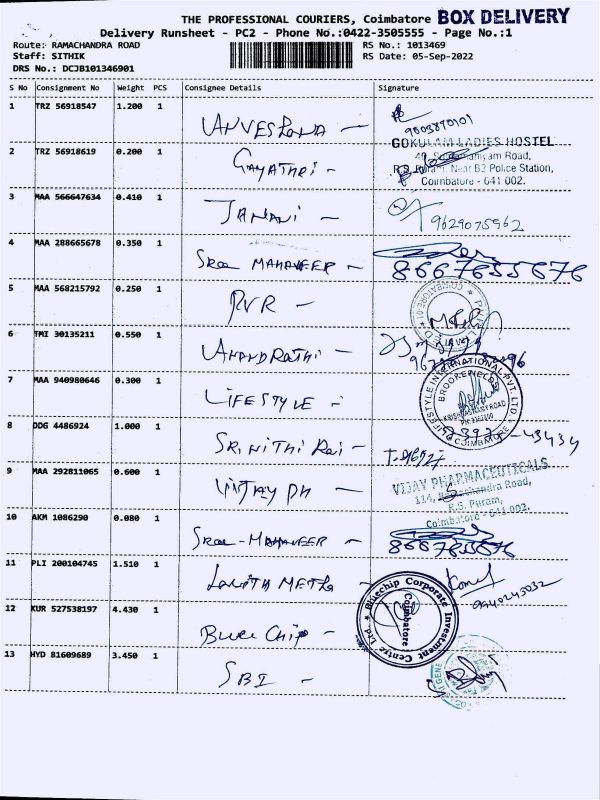 THE PROFESSIONAL COURIERS, Coimbatore BOX DELIVERY
Delivery Runsheet - PC2 - Phone No.:0422-3505555 - Page No.:1
Route: RAMACHANDRA ROAD RS No.: 1013469
Staff: SITHIK RS Date: 05-Sep-2022
DRS No.: DCJB101346901
S No Consignment No Weight PCS Consignee Details Signature
1 TRZ 56918547 1.200 1
ANVESHANA - 9003870101
2 TRZ 56918619 0.200 1 GOKULAM LADIES HOSTEL
GAYATHRI - Road,
Near B2 Police Station,
Coimbatore - 641 002.
3 MAA 566647634 0.410 1
JANANI - 9629075962
4 MAA 288665678 0.350 1
SREE MAHAVEER - 8667855676
5 MAA 568215792 0.250 1
PVR -
6 TMI 30135211 0.550 1
ANANDRATHI -
7 MAA 940980646 0.300 1
LIFESTYLE -
LIFESTYLE INTERNATIONAL PVT. LTD.
BROOKEFIELDS
COIMBATORE
8 DDG 4486924 1.000 1
SRINITHI Rai - 43434
9 MAA 292811065 0.600 1
VIJAY PH - VIJAY PHARMACEUTICALS
114, Road,
R.S. Puram,
Coimbatore - 641 002.
10 AKM 1086290 0.080 1
SREE - MAHAVEER - 8667855676
11 PLI 200104745 1.510 1
LALITH METHA -
12 KUR 527538197 4.430 1
BLUE CHIP -
Bluechip Corporate Investment Centre Ltd.
Coimbatore
13 HYD 81609689 3.450 1
SBI -